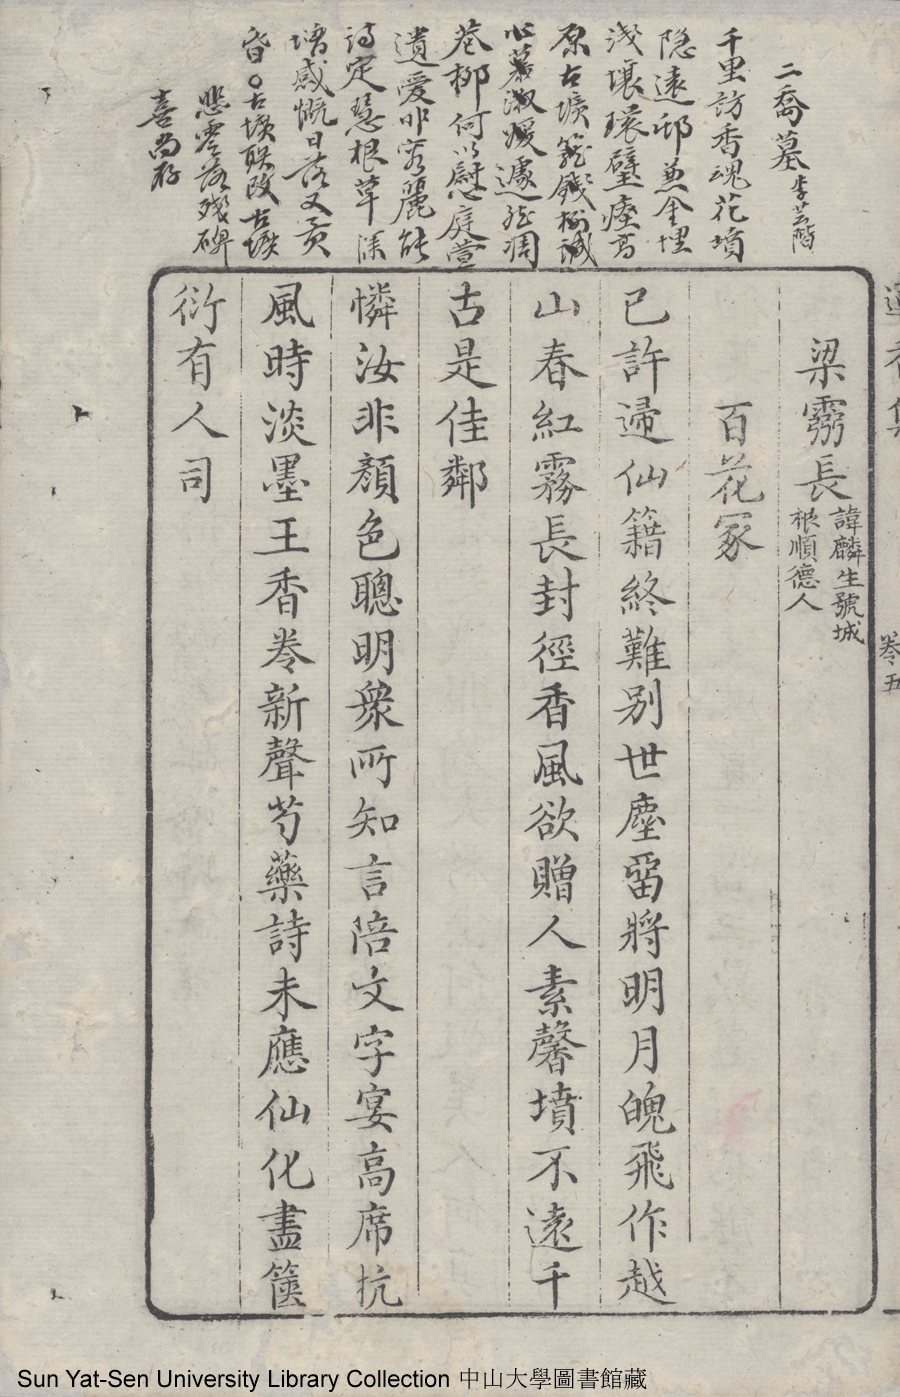 二喬墓 李芸階
千里訪香魂花墳
隐遠邨無金埋
浅壤環壁瘗高
原古壙
心慕淑媛遽
巷柳何以慰庭萱
遺愛叩窅麗能
詩定慧根草深
增感慨日落又黃
昏
悲零落殘碑
喜尚存
蓮香集
卷五
梁雺長 諱麟生號城
根順德人
百花冢
已許歸仙籍終難別世塵畱將明月魄飛作越
山春紅霧長封徑香風欲贈人素馨墳不遠千
古是佳鄰
憐汝非顏色聰明衆所知言陪文字宴高席抗
風時淡墨王香卷新聲芍藥詩未應仙化盡篋
衍有人司
Sun Yat-Sen University Library Collection 中山大學圖書館藏